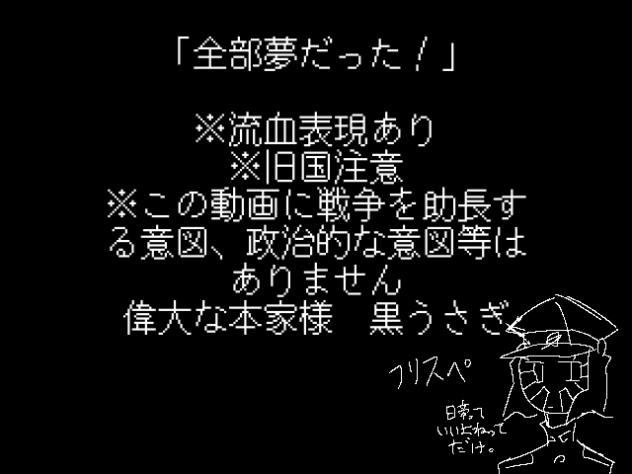 「全部夢だった！」
※流血表現あり
※旧国注意
※この動画に戦争を助長す
る意図、政治的な意図等は
ありません
偉大な本家様　黒うさぎ
フリスペ
日帝って
いいよねって
だけ。